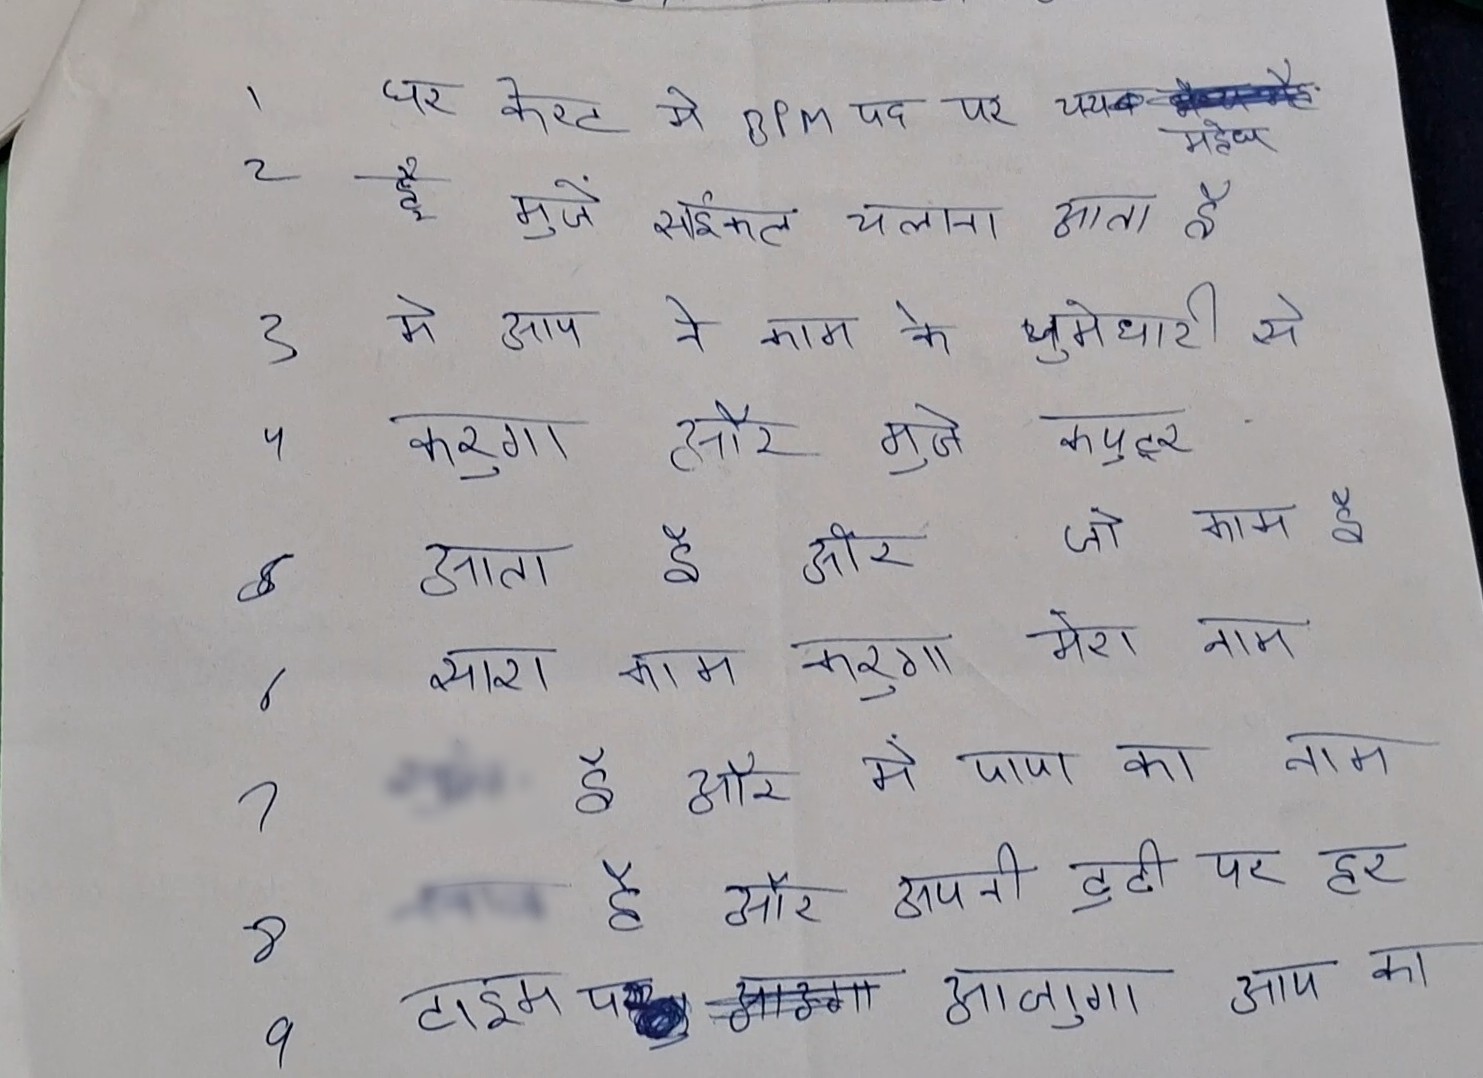 1 घर केस्ट मे BPM पद पर चयक
महेध
2 है मुजें सईकल चलाना आता है
3 मे आप ने काम के धुमेधारी से
4 करुगा और मुजे कपुटर
5 आता है और जो काम है
6 सारा काम करुगा मेरा नाम
7 है और में पापा का नाम
8 है और अपनी टुटी पर हर
9 टाइम पर आजुगा आप का